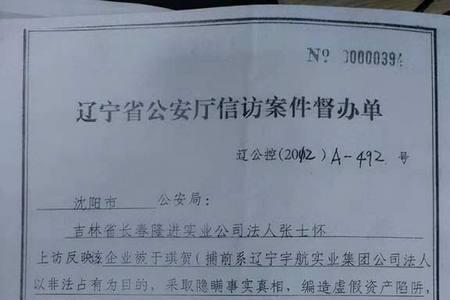 No 0000394
辽宁省公安厅信访案件督办单
辽公控(2012) A-492 号
沈阳市 公安局:
吉林省长春隆进实业公司法人张士怀
上访反映该企业被于琪贺(捕前系辽宁宇航实业集团公司法人
以非法占有为目的，采取隐瞒事实真相，编造虚假资产陷阱，